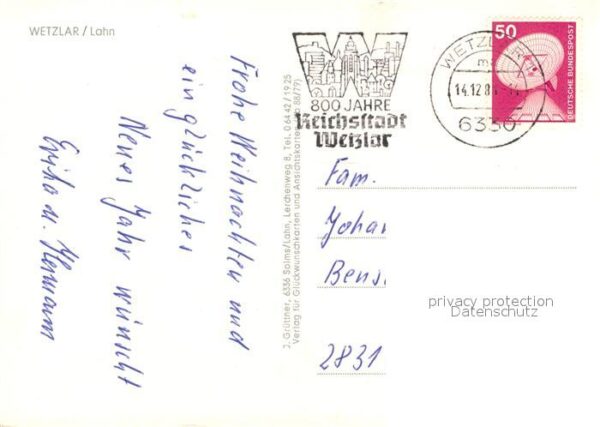 WETZLAR / Lahn
Frohe Weihnachten und
ein glückliches
Neues Jahr wünscht
Erika u. Hermann
J. Grüttner, 6336 Solms/Lahn, Lerchenweg 8, Tel. 0 64 42 / 19 25
Verlag für Glückwunschkarten und Ansichtskarten
88/79
800 JAHRE
Reichsstadt
Wetzlar
WETZLAR
14.12.8
6330
50
DEUTSCHE BUNDESPOST
Fam.
Johan
Bens
2831
privacy protection
Datenschutz